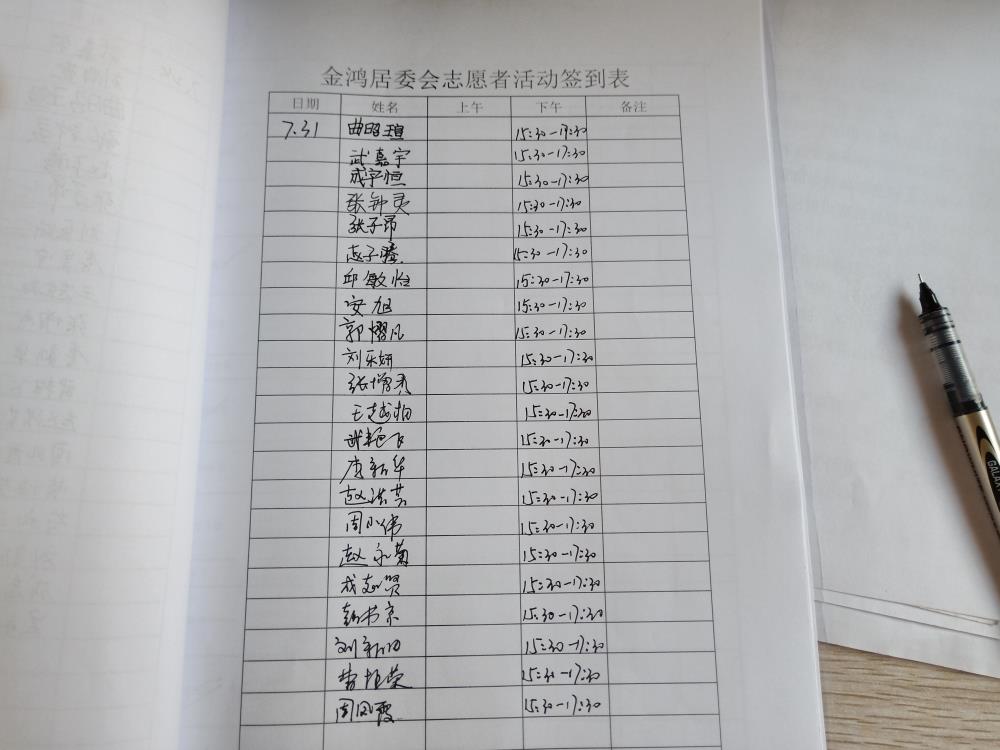 金鸿居委会志愿者活动签到表
日期 姓名 上午 下午 备注
7.31 曲昭瑄 15:30-17:30
武嘉宇 15:30-17:30
成宇恒 15:30-17:30
张钟灵 15:30-17:30
张子昂 15:30-17:30
赵子腾 15:30-17:30
邱敏怡 15:30-17:30
安旭 15:30-17:30
郭熠凡 15:30-17:30
刘乐妍 15:30-17:30
张增秀 15:30-17:30
王越相 15:30-17:30
武艳飞 15:30-17:30
唐新华 15:30-17:30
赵洪英 15:30-17:30
周小伟 15:30-17:30
赵永菊 15:30-17:30
成志贤 15:30-17:30
书京 15:30-17:30
刘新 15:30-17:30
曹桂荣 15:30-17:30
周凤霞 15:30-17:30
GALAX